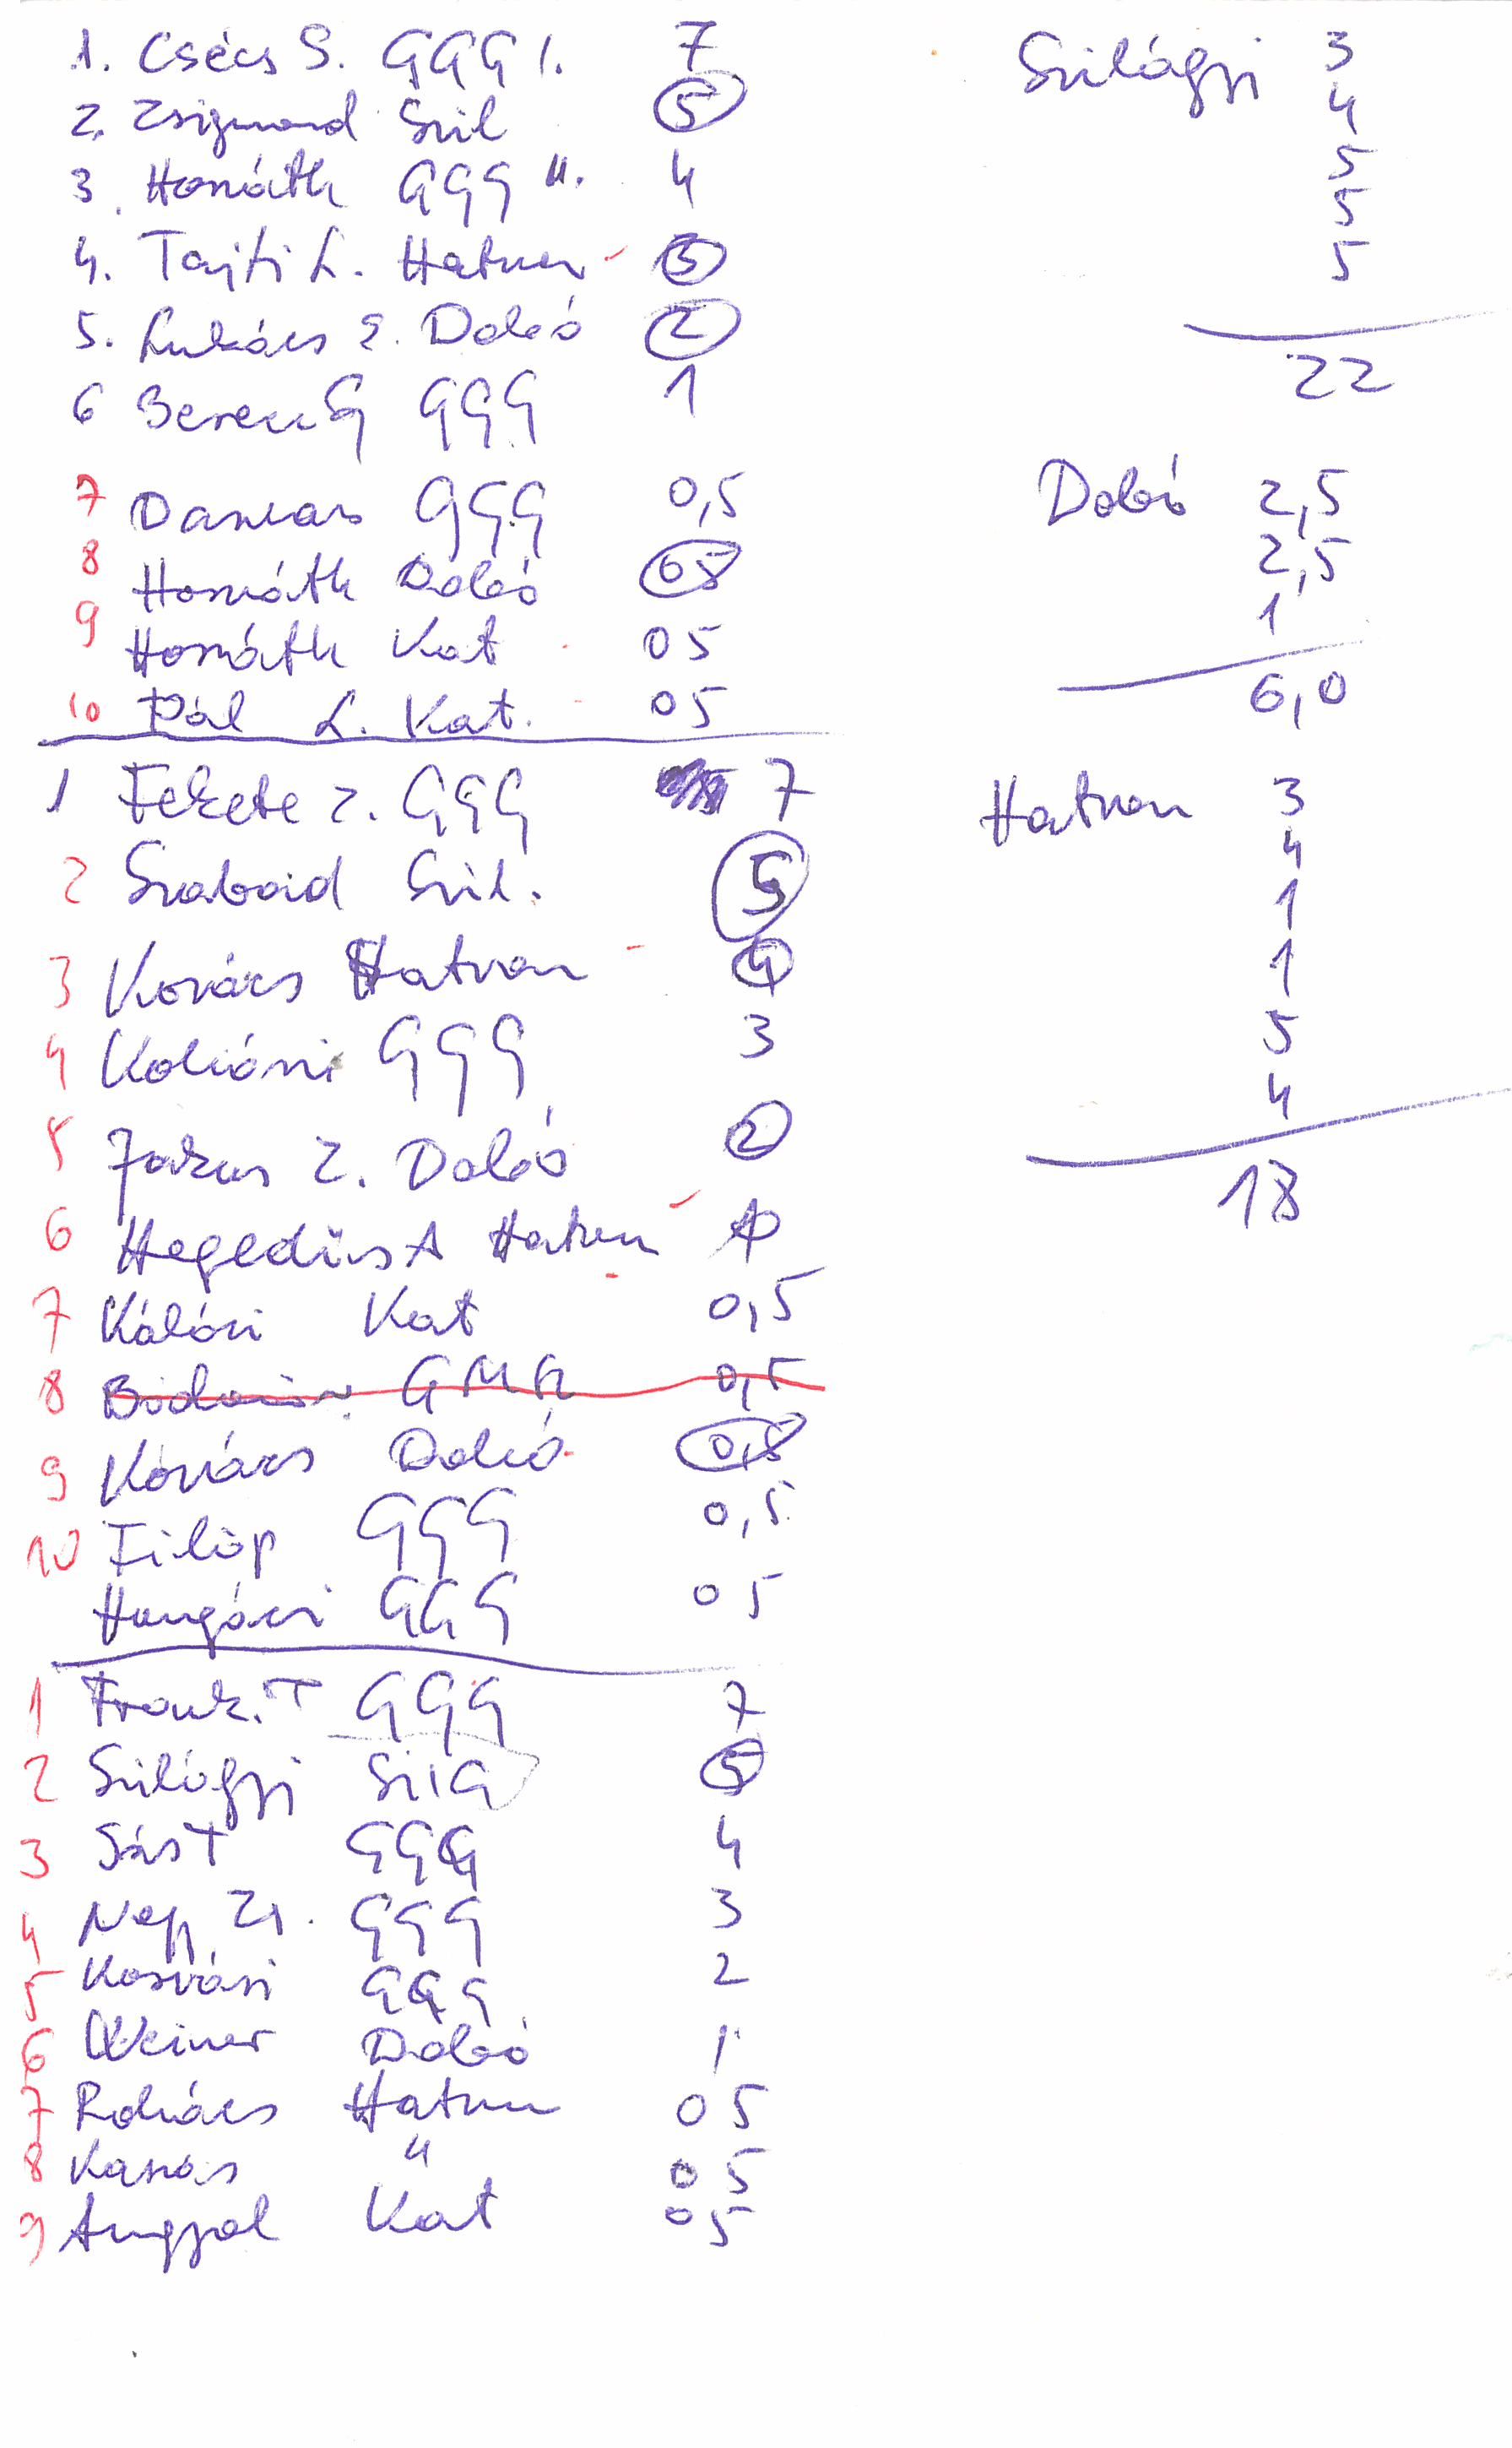 1. Csécs S. GGG I. 7
2. Zsigmond Szil 5
3. Horváth GGG II. 4
4. Tajti L. Hatvan 3
5. Lukács E. Dobó 2
6 Berecz G GGG 1
7 GGG 0,5
8 Horváth Dobó 05
9 Horváth Kat 05
10 Pál L. Kat. 05
1 Fekete Z. GGG 7
2 Szil. 5
3 Kovács Hatvan 4
4 GGG 3
5 Z. Dobó 2
6 Hegedüs A Hatvan 1
7 Kálói Kat 0,5
8 0,5
9 Kovács Dobó 0,5
10 Fülöp GGG 0,5
GGG 05
1 Frank. T GGG 7
2 Szilágyi SZIG 5
3 Sás T GGG 4
4 Nagy Zs. GGG 3
5 GGG 2
6 Weiner Dobó 1
7 Hatvan 05
8 " 05
9 Angyal Kat 05
Szilágyi 3
4
5
5
5
22
Dobó 2,5
2,5
1
6,0
Hatvan 3
4
1
1
5
4
18